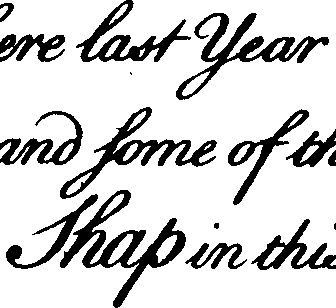 ere last Year
and ſome of th
Shap in this